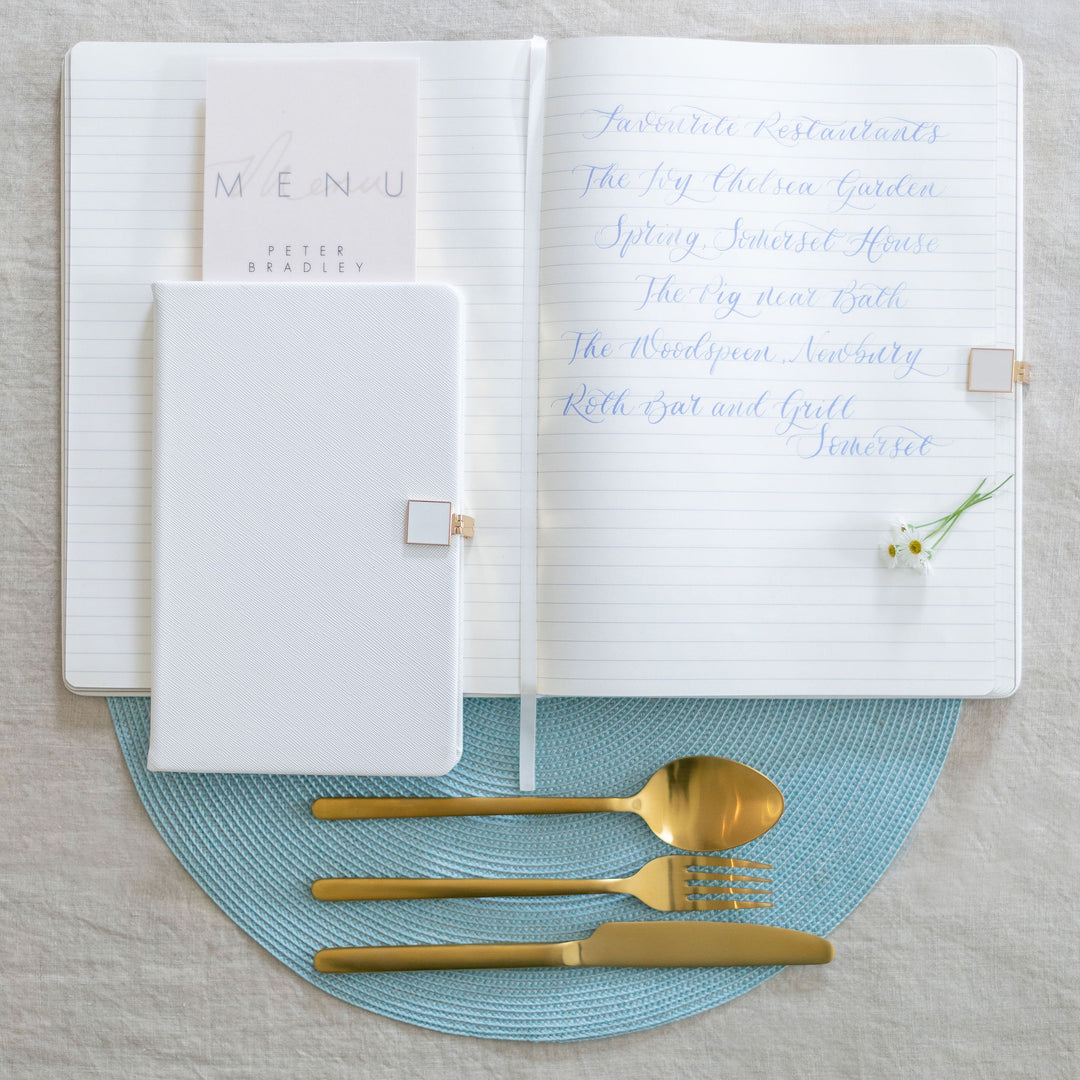 MENU
Menu
PETER
BRADLEY
Favourite Restaurants
The Ivy Chelsea Garden
Spring, Somerset House
The Pig near Bath
The Woodspeen, Newbury
Roth Bar and Grill
Somerset